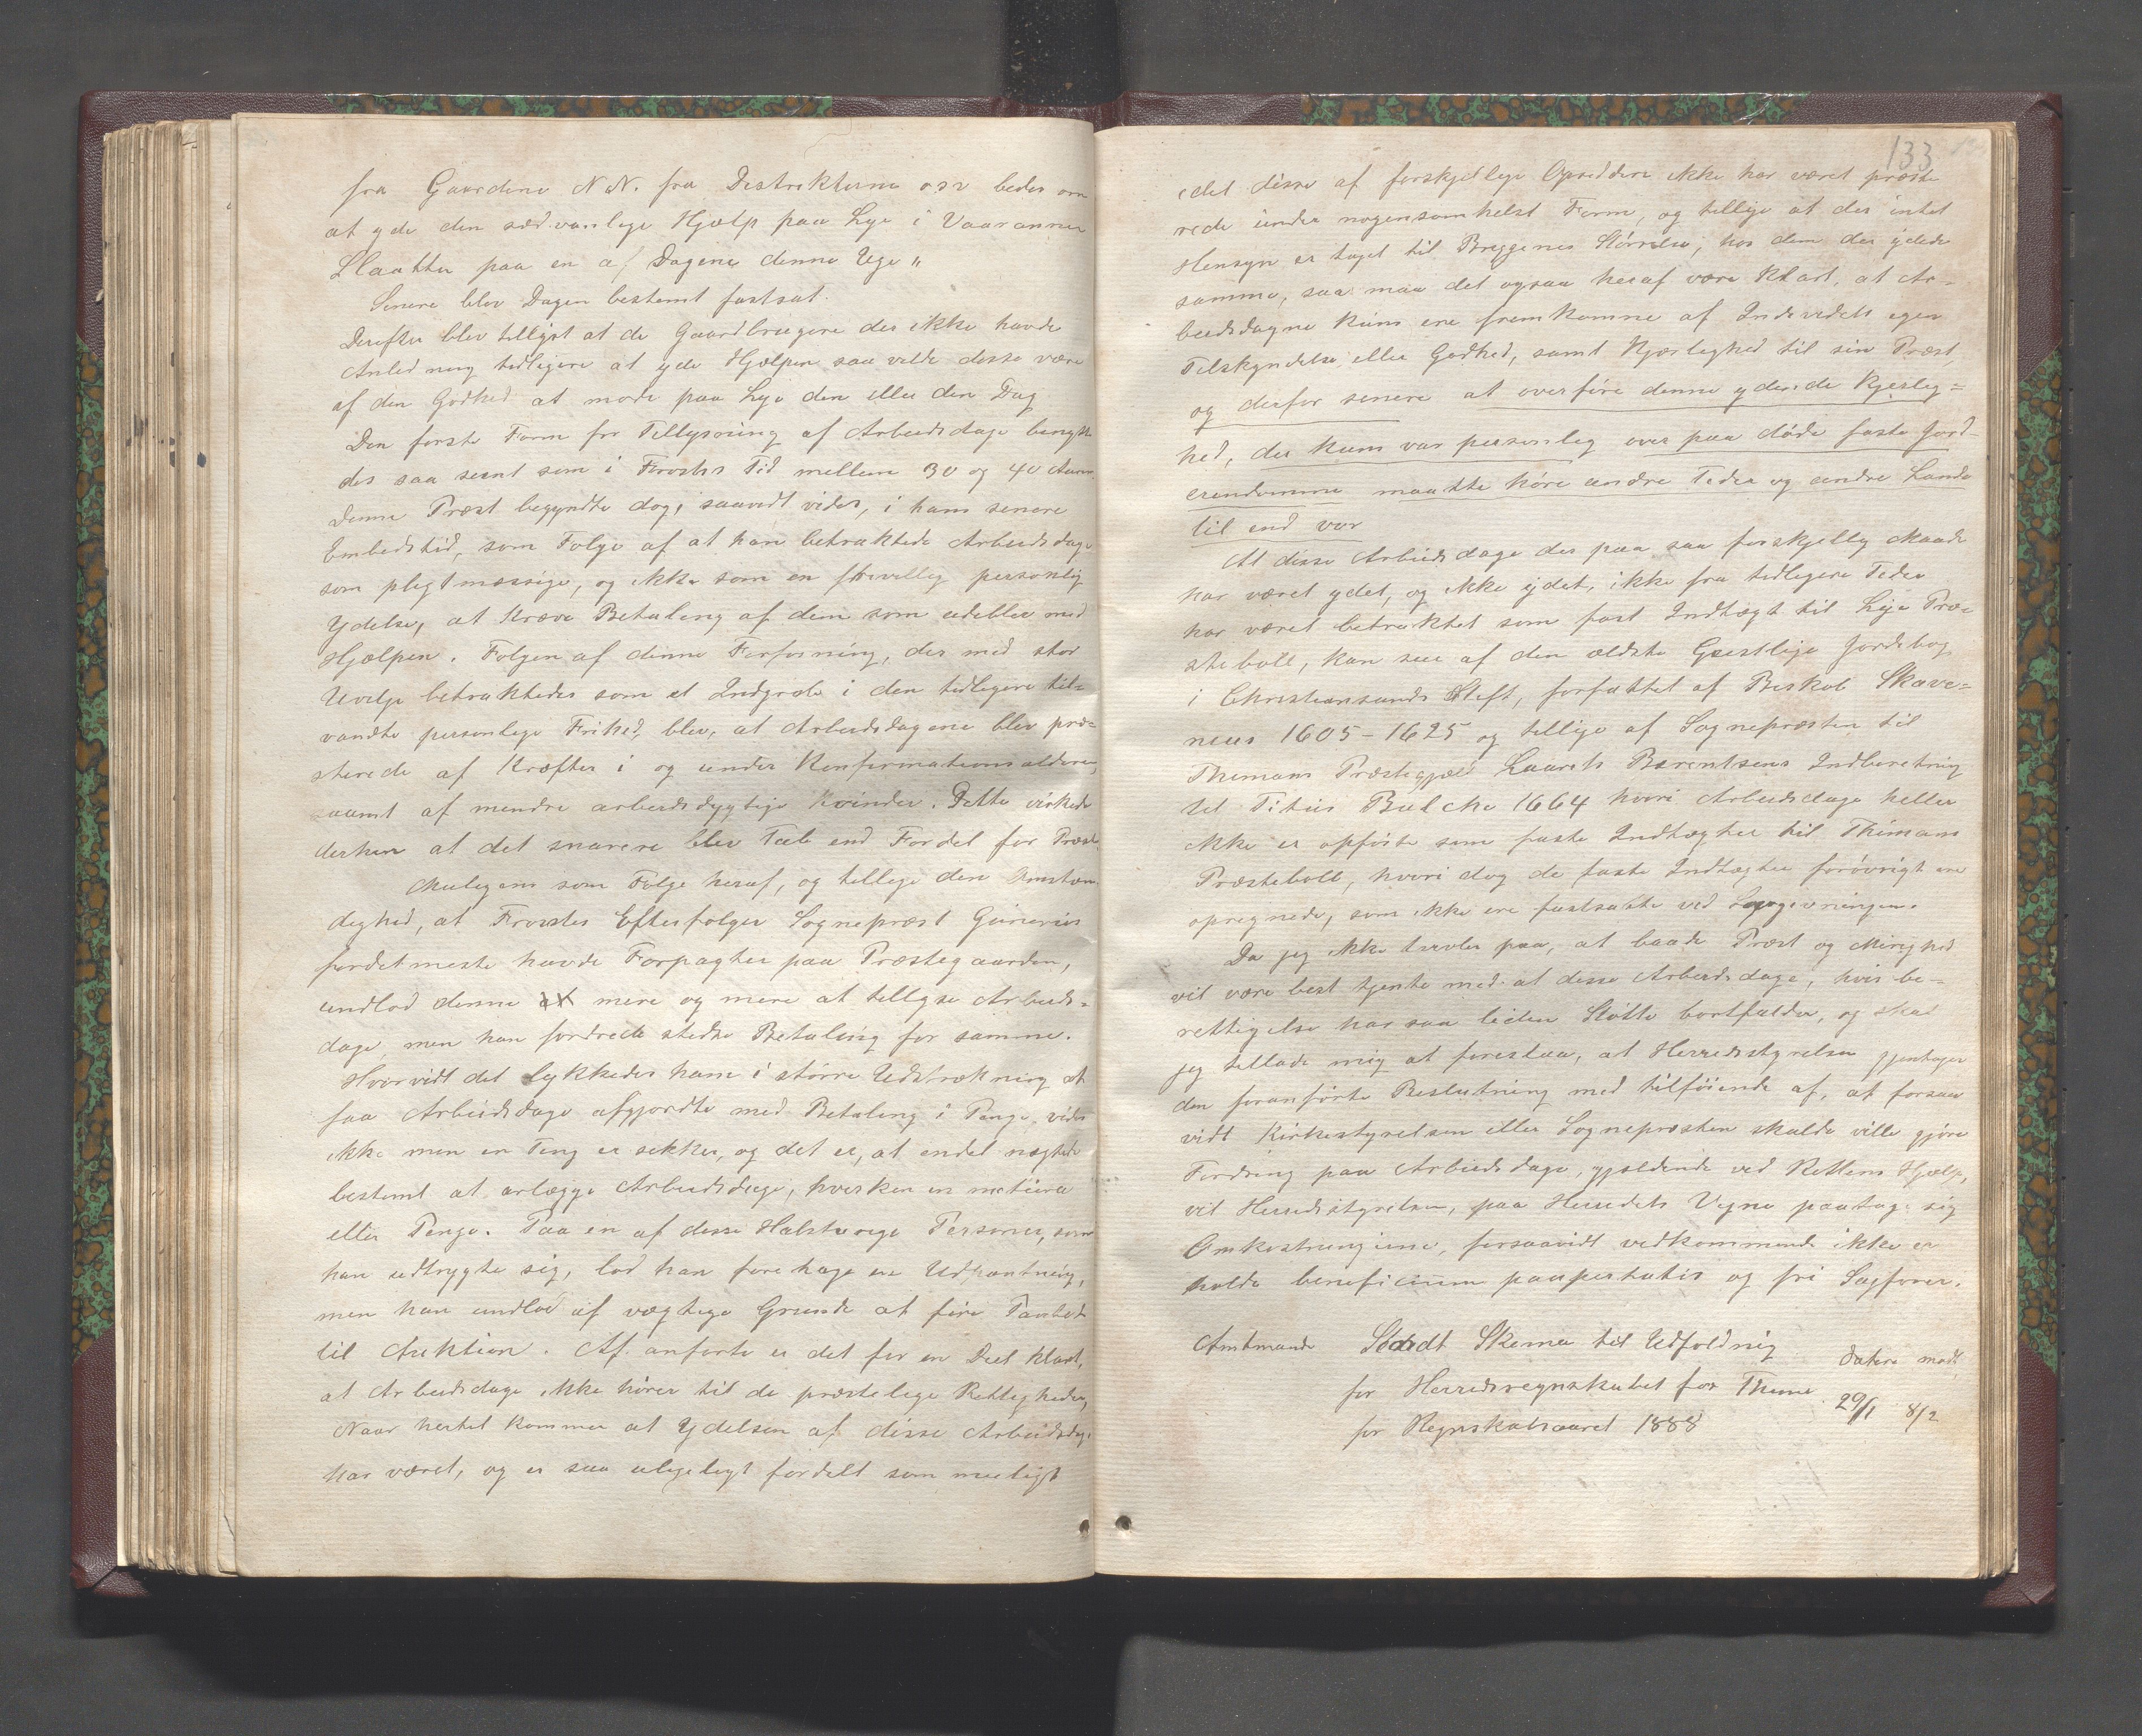 fra Gaardene N N. fra Distrikterne osv bedes om
at yde den sædvanlige Hjælp paa Lye i Vaaronnen
Slaatten paa en af Dagene denne Uge "
Senere blev Dagen bestemt fastsat.
Derefter blev tillyst at de Gaardbrugere der ikke havde
Anledning tidligere at yde Hjælpen saa vilde disse være
af den Godhed at møde paa Lye den eller den Dag
Den første Form for Tillysning af Arbeidsdage benytte
des saa seent som i Frosts Tid mellem 30 og 40 Aarene.
Denne Præst begyndte dog, saavidt vides, i hans senere
Embedstid, som Følge af at han betraktede Arbeidsdage
som pligtmæssige, og ikke som en frivillig personlig
Ydelse, at kræve Betaling af dem som udeblev med
Hjælpen. Følgen af denne Forføining, der med stor
Uvilje betraktedes som et Indgreb i den tidligere til=
vandte personlige Frihed, blev, at Arbeidsdagene blev præ=
sterede af Kræfter i og under Konfirmationsalderen,
samt af mindre arbeidsdygtige Kvinder. Dette virkede
derhen at det snarere blev Tab end Fordel for Præst.
Muligens som Følge heraf, og tillige den Omstæn
dighed, at Frosts Efterfølger Sognepræst Gunerius
fordetmeste havde Forpagter paa Præstegaarden,
undlod denne mere og mere at tillyse Arbeids=
dage, men han fordrede stedse Betaling for samme.
Hvorvidt det lykkedes ham i større Udstrækning at
faa Arbeidsdage afgjordte med Betaling i Penge, vides
ikke men en Ting er sikker, og det er, at endel nægtede
bestemt at erlægge Arbeidsdage, hverken in natura
eller Penge. Paa en af disse Halsterige Personer, som
han udtrygte sig, lod han foretage en Udpantning,
men han undlod af vægtige Grunde at føre Pantet
til Auktion. Af anførte er det for en Deel klart,
at Arbeidsdage ikke hører til de præstelige Rettigheder,
Naar hertil kommer at Ydelsen af disse Arbeidsdage
har været, og er saa uligeligt fordelt som muligt
133
idet disse af forskjellige Opsiddere ikke har været præste
rede under nogensomhelst Form, og tillige at der intet
Hensyn er taget til Bruggenes Størrelse, hos dem der ydede
samme, saa maa det ogsaa heraf være klart, at Ar=
beidsdagene kuns ere fremkomne af Individets egen
Tilskyndelse, eller Godhed, samt Kjærlighed til sin Præst,
og derfor senere at overføre denne ydende Kjerlig=
hed, der kuns var personlig over paa døde faste Jord-
eiendomme maatte høre andre Tider og andre Lande
til end vor
At disse Arbeidsdage der paa saa forskjellig Maade
har været ydet, og ikke ydet, ikke fra tidligere Tider
har været betraktet som fast Indtægt til Lye Præ=
stebol, kan sees af den ældste Geistlige Jordebog
i Christiansands Stift, forfattet af Biskob Skave=
nius 1605-1625 og tillige af Sognepræsten til
Thimans Præstegjæld Laurits Barentsens Indberetning
til Titus Bulche 1664 hvori Arbeidsdage heller
ikke er opførte som faste Indtægter til Thimans
Præstebol, hvori dog de faste Indtægter forøvrigt ere
opregnede, som ikke ere fastsatte ved Lovgivningen.
Da jeg ikke tvivler paa, at baade Præst og Menighed
vil være best tjente med at disse Arbeidsdage, hvis be=
rettigelse har saa liden Støtte bortfalder, og skal
jeg tillade mig at foreslaa, at Herredsstyrelsen gjentager
den foranførte Beslutning med tilføiende af, at forsaa
vidt Kirkestyrelsen eller Sognepræsten skulde ville gjøre
Fordring paa Arbeidsdage, gjældende ved Rettens Hjælp,
vil Herredsstyrelsen, paa Herredets Vegne paatage sig
Omkostningerne, forsaavidt vedkommende ikke er
holde beneficium paupertatis og fri Sagfører.
Amtmand Skema til Udfoldnig datere modt
for Herredsregnskabet for Thime 29/1 8/2
for Regnskabsaaret 1888